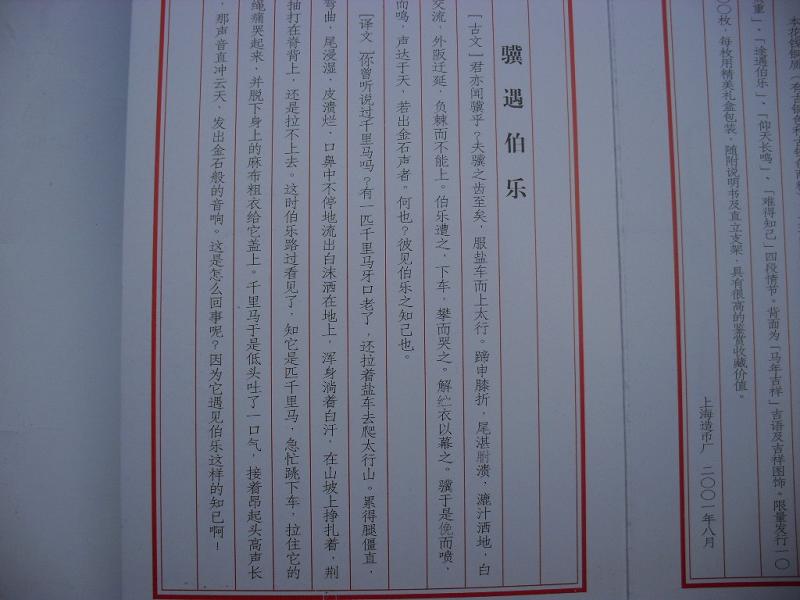 本花钱银质
重」、「途遇伯乐」、「仰天长鸣」、「难得知己」四段情节。背面为「马年吉祥」吉语及吉祥图饰。限量发行一〇
〇〇枚，每枚用精美礼盒包装，随附说明书及直立支架，具有很高的鉴赏收藏价值。
上海造币厂 二〇〇一年八月
骥遇伯乐
[古文]君亦闻骥乎？夫骥之齿至矣，服盐车而上太行。蹄申膝折，尾湛胕溃，漉汁洒地，白
交流，外阪迁延，负棘而不能上。伯乐遭之，下车，攀而哭之。解纻衣以幕之。骥于是俛而喷，
而鸣，声达于天，若出金石声者。何也？彼见伯乐之知己也。
[译文]你曾听说过千里马吗？有一匹千里马牙口老了，还拉着盐车去爬太行山。累得腿僵直，
弯曲，尾浸湿，皮溃烂，口鼻中不停地流出白沫洒在地上，浑身淌着白汗，在山坡上挣扎着，荆
抽打在脊背上，还是拉不上去。这时伯乐路过看见了，知它是匹千里马，急忙跳下车，拉住它的
绳痛哭起来，并脱下身上的麻布粗衣给它盖上。千里马于是低头吐了一口气，接着昂起头高声长
，那声音直冲云天，发出金石般的音响。这是怎么回事呢？因为它遇见伯乐这样的知己啊！